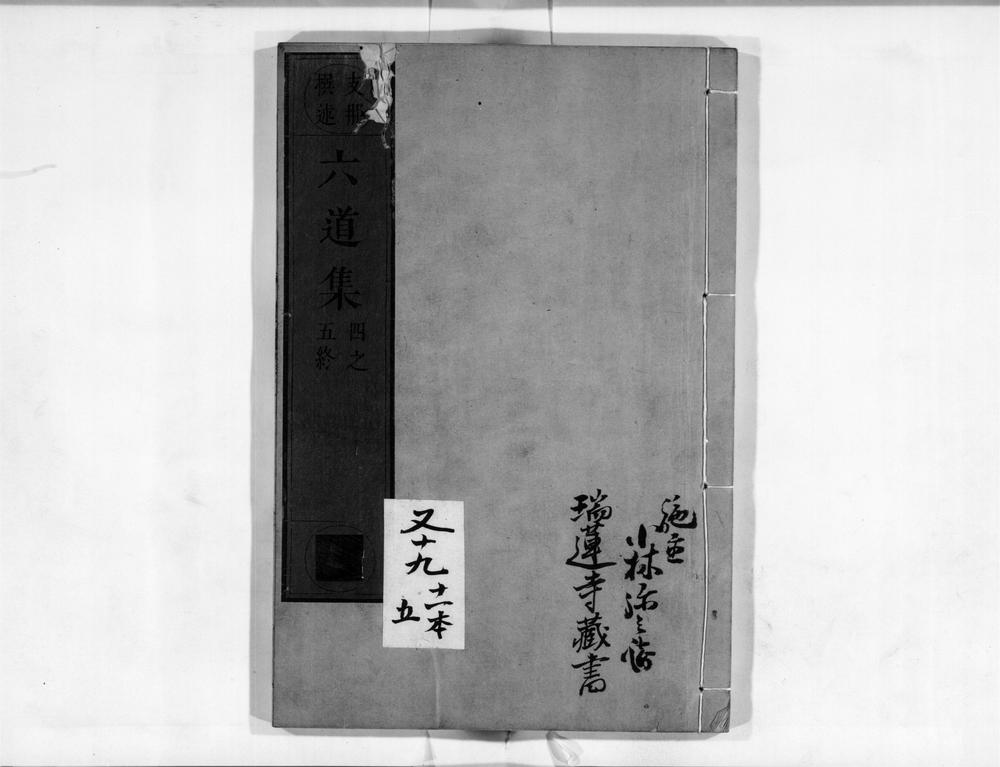 支那
撰述
六道集
四之
五終
施主
小林弥之
瑞蓮寺藏書
又十九
十一本
五